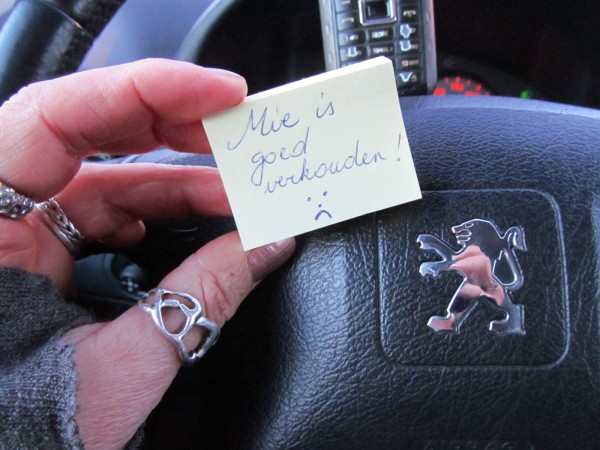 Mie is
goed
verkouden!